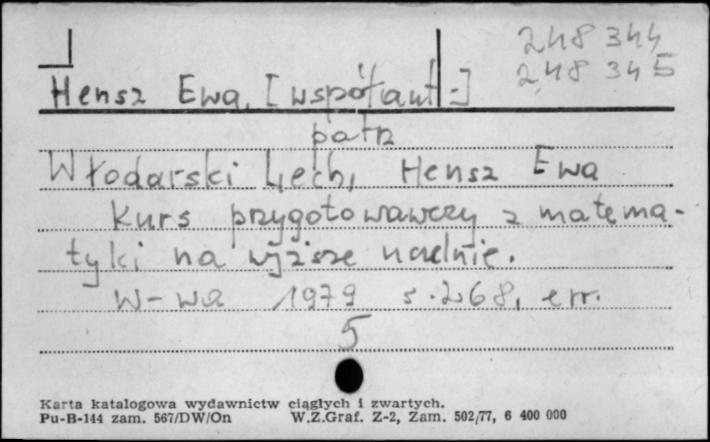 248 344
248 345
Hensz Ewa, [współaut.]
patrz
Włodarski Lech, Hensz Ewa
Kurs przygotowawczy z matema-
tyki na wyższe uczelnie.
W-wa 1979 s. 268, err.
5
Karta katalogowa wydawnictw ciągłych i zwartych.
Pu-B-144 zam. 567/DW/On W.Z.Graf. Z-2, Zam. 502/77, 6 400 000